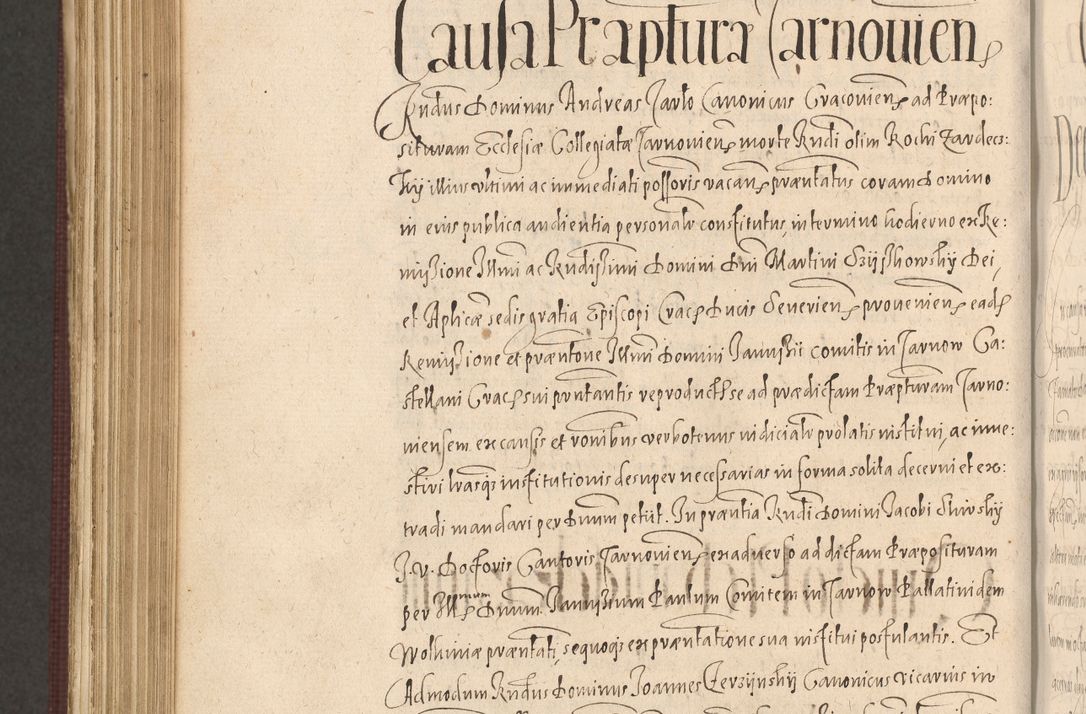 Causa Præptura Tarnouien
Rndus Dominus Andreas Jarło Canonicus Cracouien ad Præpo:
situram Ecclesiæ Collegiatæ Tarnouien morte Rndi olim Rochi Zardec:
kij illius vltimi ac immediati possoris vacan præntatus coram Domino
in eius publica audientia personalr constitutus, in termino hodierno ex Re:
missione Illmi ac Rndissimi Domini Dni Martini Szijszkowskij Dei,
et Aplicæ sedis gratia Episcopi Crac Ducis Seuerien, proueniens eads
Remissione et præntone Illmi Domini Janussii comitis in Tarnow Ca:
stellani Crac sui pntantis reproducts se ad prædictam Præpturam Tarno:
uiensem ex causis et ronibus verbotenus iudicialr prolatis institui, ac inue:
stiri lrasq; institutionis desuper necessarias in forma solita decerni et ex:
tradi mandari per Dnum petiit. In præntia Rndi Domini Jacobi Skirskij
J. V. Doctoris Cantoris Tarnouien ex aduerso ad dictam Præposituram
per Illmum Dnum Janussium Paulum Comitem in Tarnow Pallatinidem
Wolhiniæ præntati, sequoq; ex præntatione sua institui postulantis. Et
Admodum Rndus Dominus Joannes Gerzijnskij Canonicus vicarius in